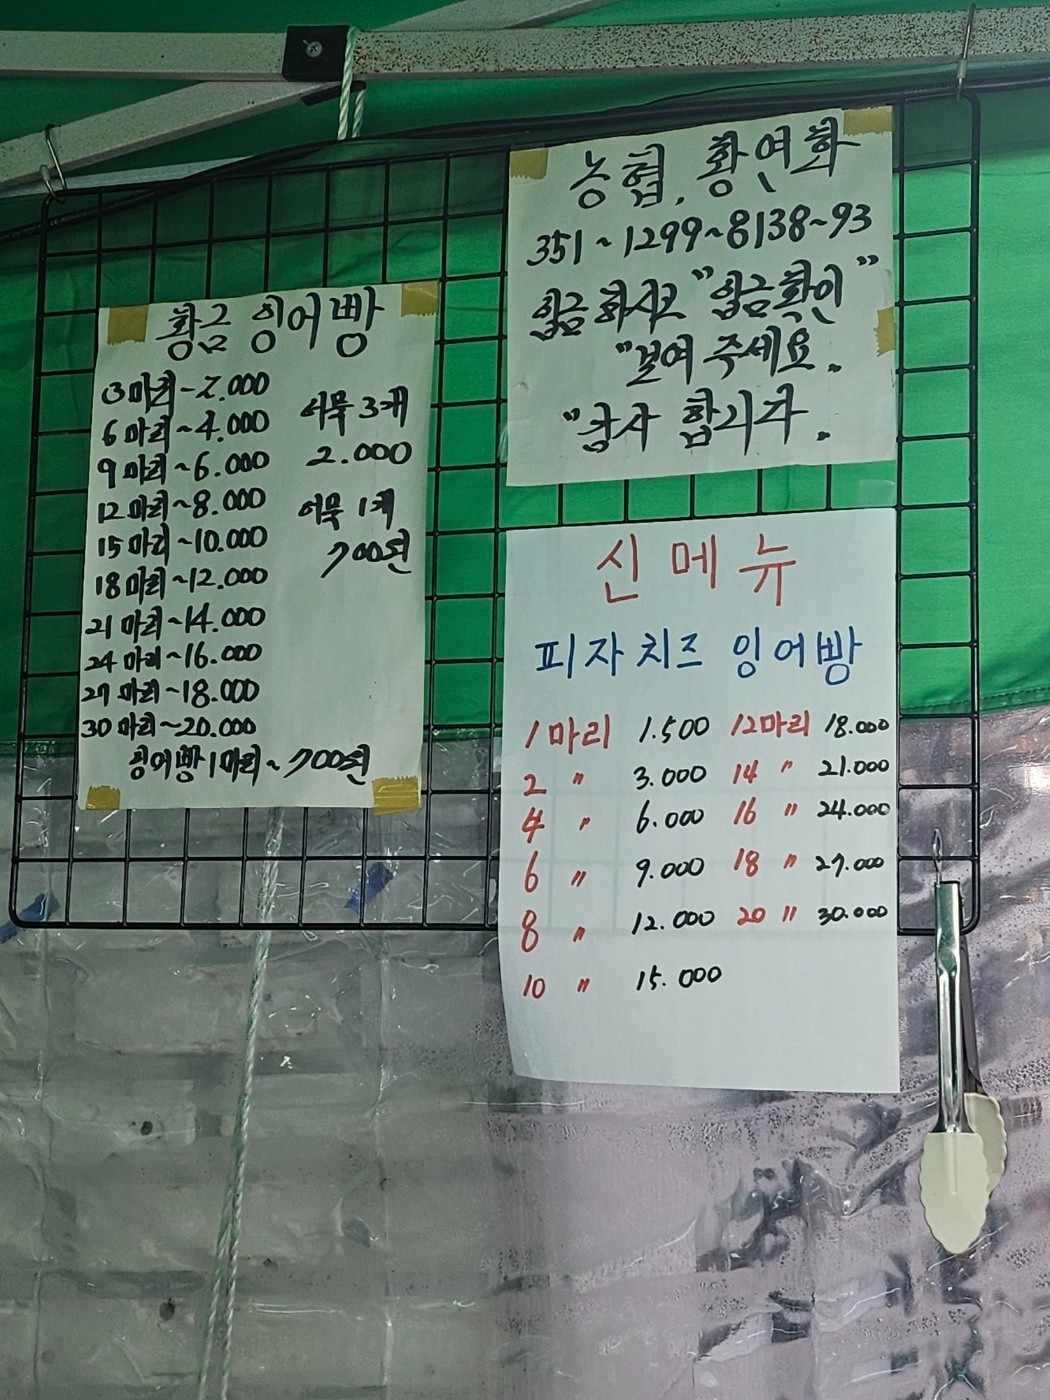 황금 잉어빵
3마리~2.000
6마리~4.000
9마리~6.000
12마리~8.000
15마리~10.000
18마리~12.000
21마리~14.000
24마리~16.000
27마리~18.000
30마리~20.000
잉어빵1마리~700원
어묵 3개
2.000
어묵 1개
700원
농협. 황연화
351~1299~8138~93
입금 하시고 "입금확인"
"보여 주세요.
"감사 합니다.
신메뉴
피자치즈 잉어빵
1마리 1.500 12마리 18.000
2 〃 3.000 14 〃 21.000
4 〃 6.000 16 〃 24.000
6 〃 9.000 18 〃 27.000
8 〃 12.000 20 〃 30.000
10 〃 15.000